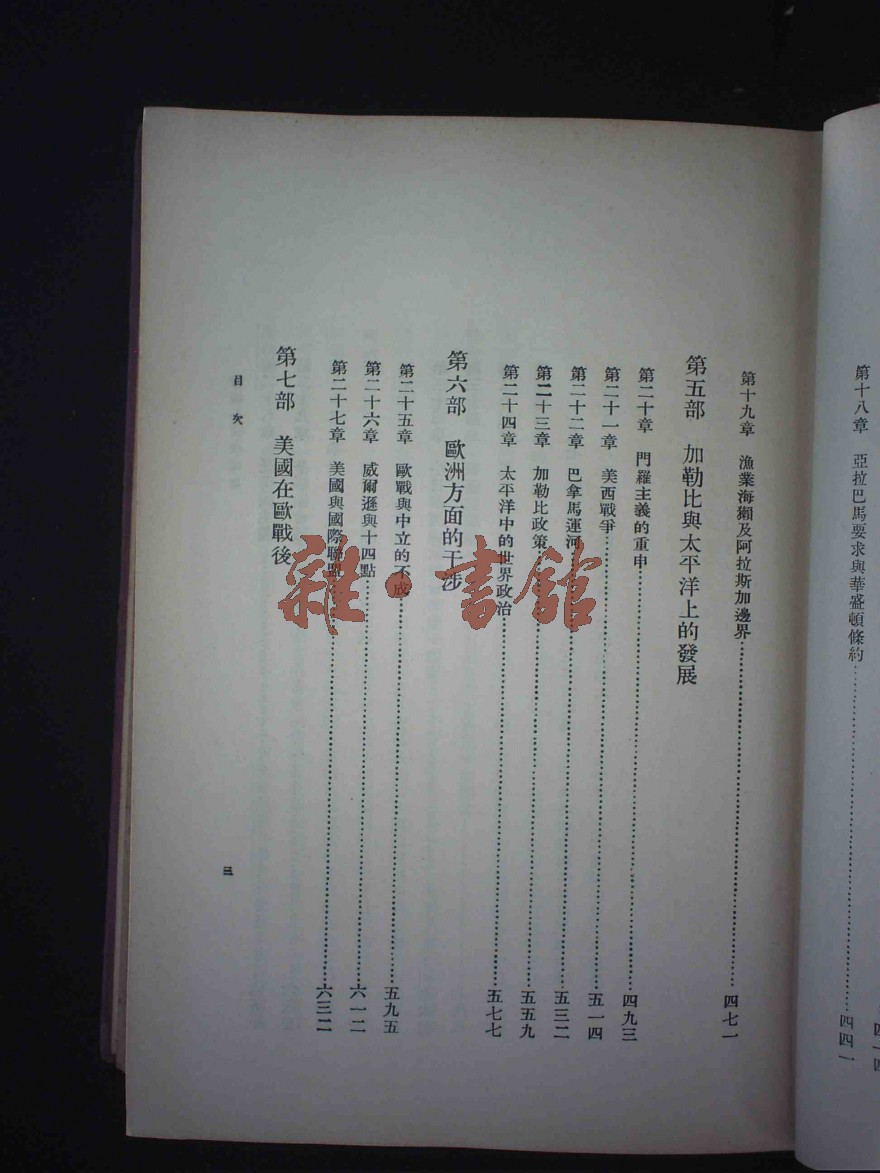 第十八章　亞拉巴馬要求與華盛頓條約……四四一
第十九章　漁業海獺及阿拉斯加邊界……四七一
第五部　加勒比與太平洋上的發展
第二十章　門羅主義的重申……四九三
第二十一章　美西戰爭……五一四
第二十二章　巴拿馬運河……五三二
第二十三章　加勒比政策……五五九
第二十四章　太平洋中的世界政治……五七七
第六部　歐洲方面的干涉
第二十五章　歐戰與中立的不成……五九五
第二十六章　威爾遜與十四點……六一二
第二十七章　美國與國際聯盟……六三二
第七部　美國在歐戰後
目次
三
雜·書館